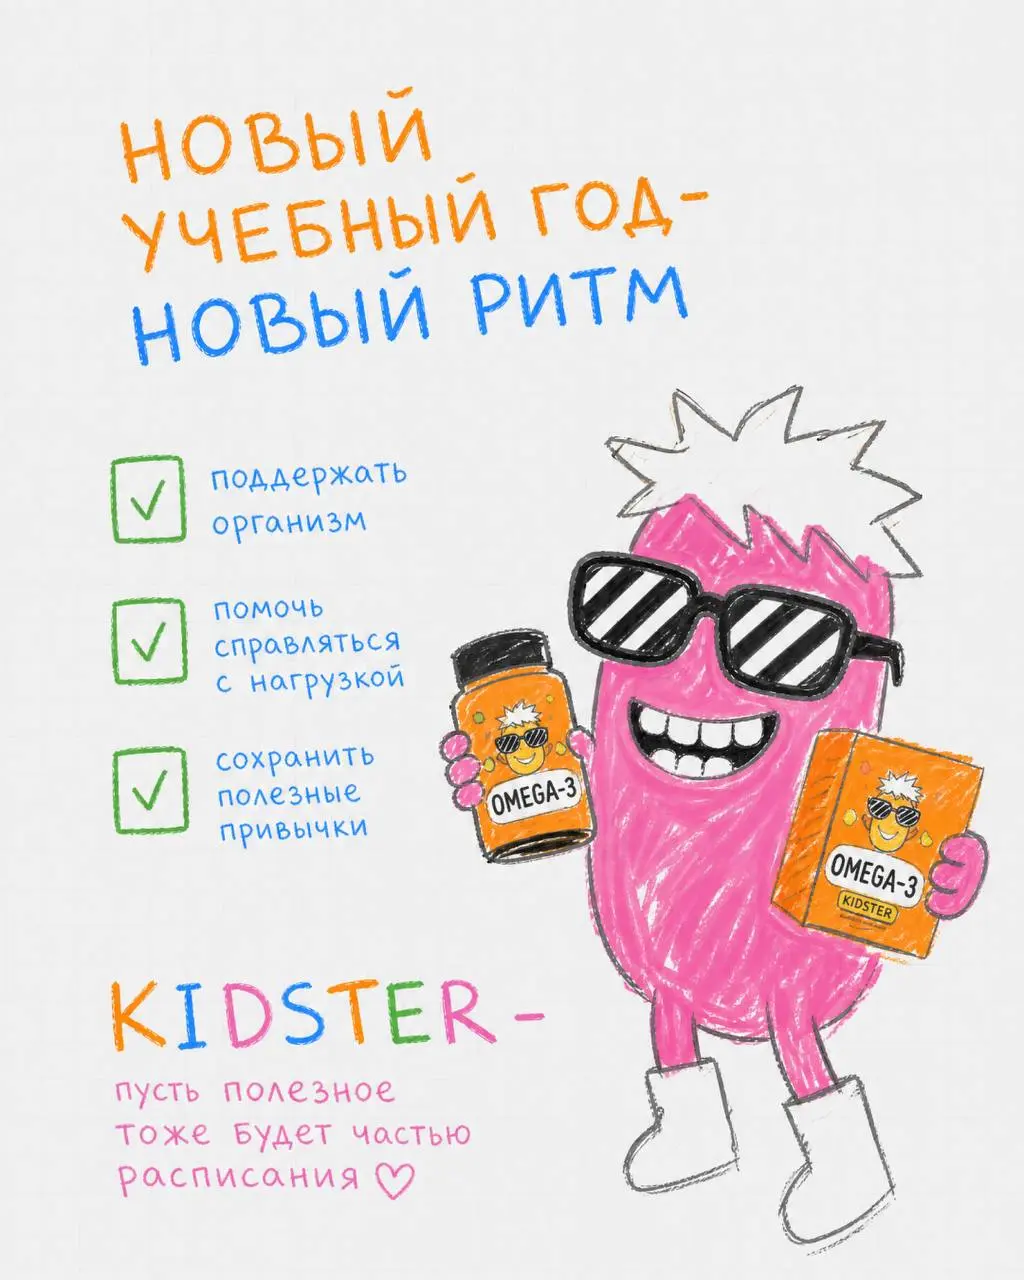 НОВЫЙ
УЧЕБНЫЙ ГОД-
НОВЫЙ РИТМ
поддержать
организм
помочь
справляться
с нагрузкой
сохранить
полезные
привычки
OMEGA-3
OMEGA-3
KIDSTER
KIDSTER-
пусть полезное
тоже будет частью
расписания ♡